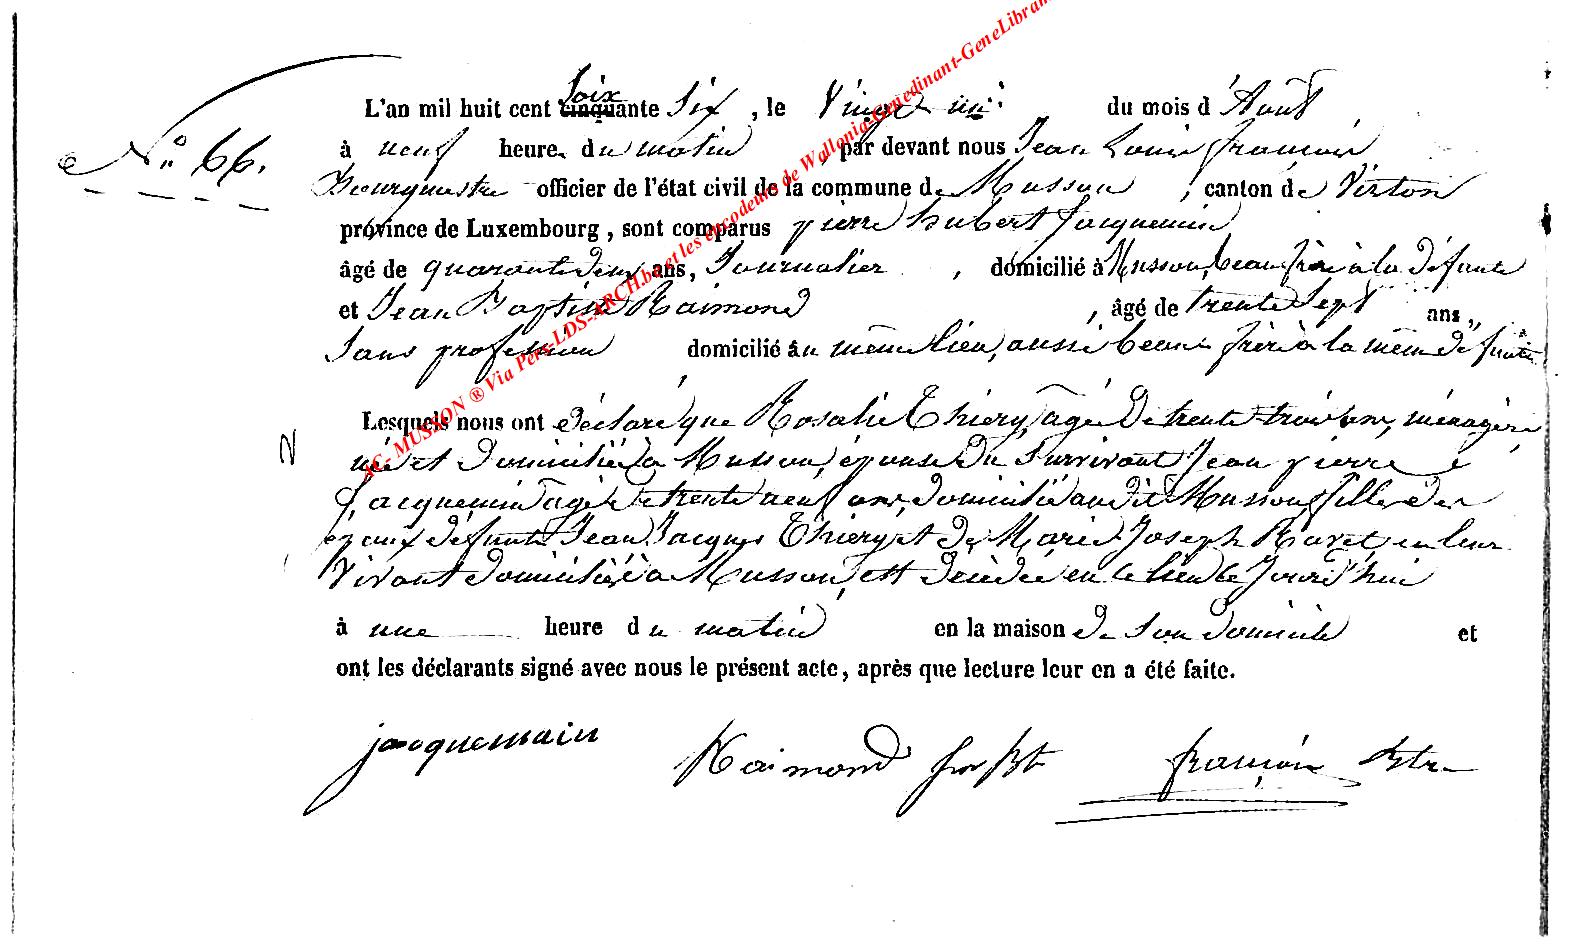 N° 66.
L'an mil huit cent Soixcinquante Six, le Vingt un du mois d'Août
à neuf heure du matin, par devant nous Jean Louis françois
Bourgmestre officier de l'état civil de la commune de Musson, canton de Virton
province de Luxembourg, sont comparus pierre hubert Jacquemin
âgé de quarante deux ans, Journalier, domicilié à Musson, beau frère à la défunte
et Jean Baptiste Raimond, âgé de trente Sept ans,
Sans profession domicilié au même lieu, aussi beau frère à la même défunte
Lesquels nous ont déclaré que Rosalie Thiery, âgée de trente trois ans, ménagère
née et domiciliée à Musson, épouse du Survivant Jean pierre
Jacquemin âgé de trente neuf ans, domicilié audit Musson, fille des
époux défunts Jean Jacques Thiery et de Marie Joseph Ravet, en leur
Vivant domiciliés à Musson, est décédée en ce lieu ce Jourd'hui
à une heure du matin en la maison de Son domicile et
ont les déclarants signé avec nous le présent acte, après que lecture leur en a été faite.
jacquemain Raimond françois Bstre
AC- MUSSON ® Via Pers-LDS-ARCH.be et les encodeurs de Wallonia-Genedinant-GeneLibram